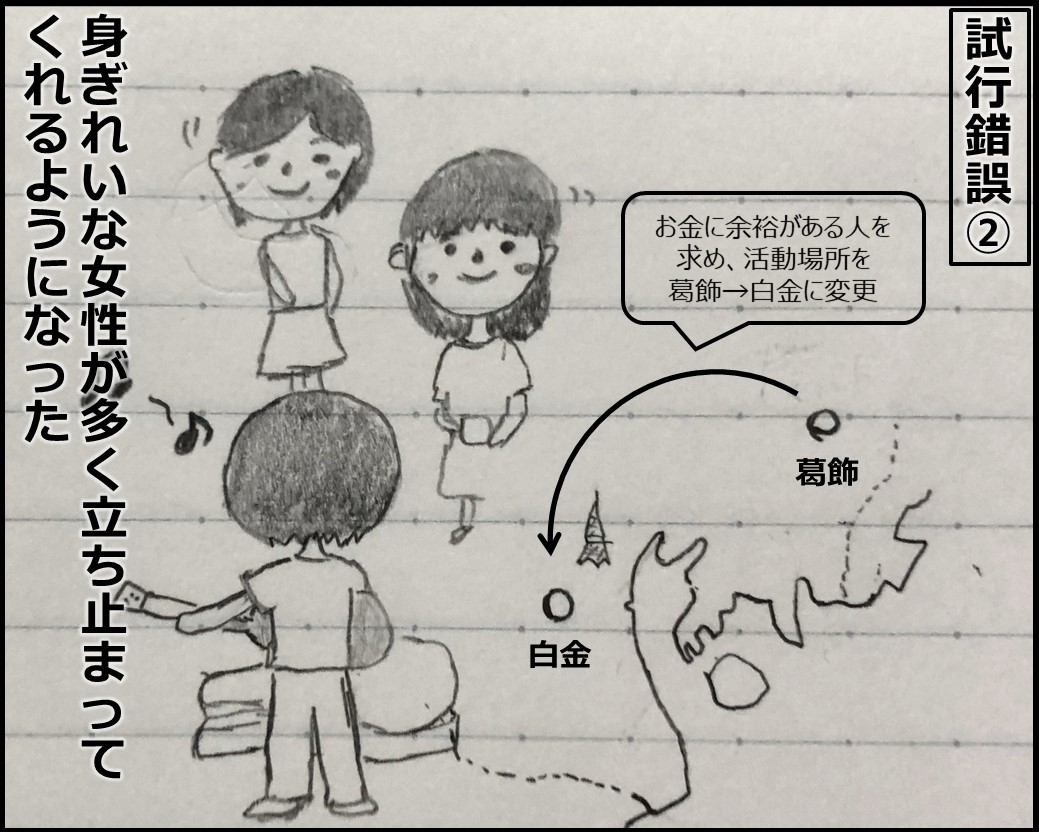 試行錯誤②
お金に余裕がある人を
求め、活動場所を
葛飾→白金に変更
葛飾
白金
身ぎれいな女性が多く立ち止まって
くれるようになった